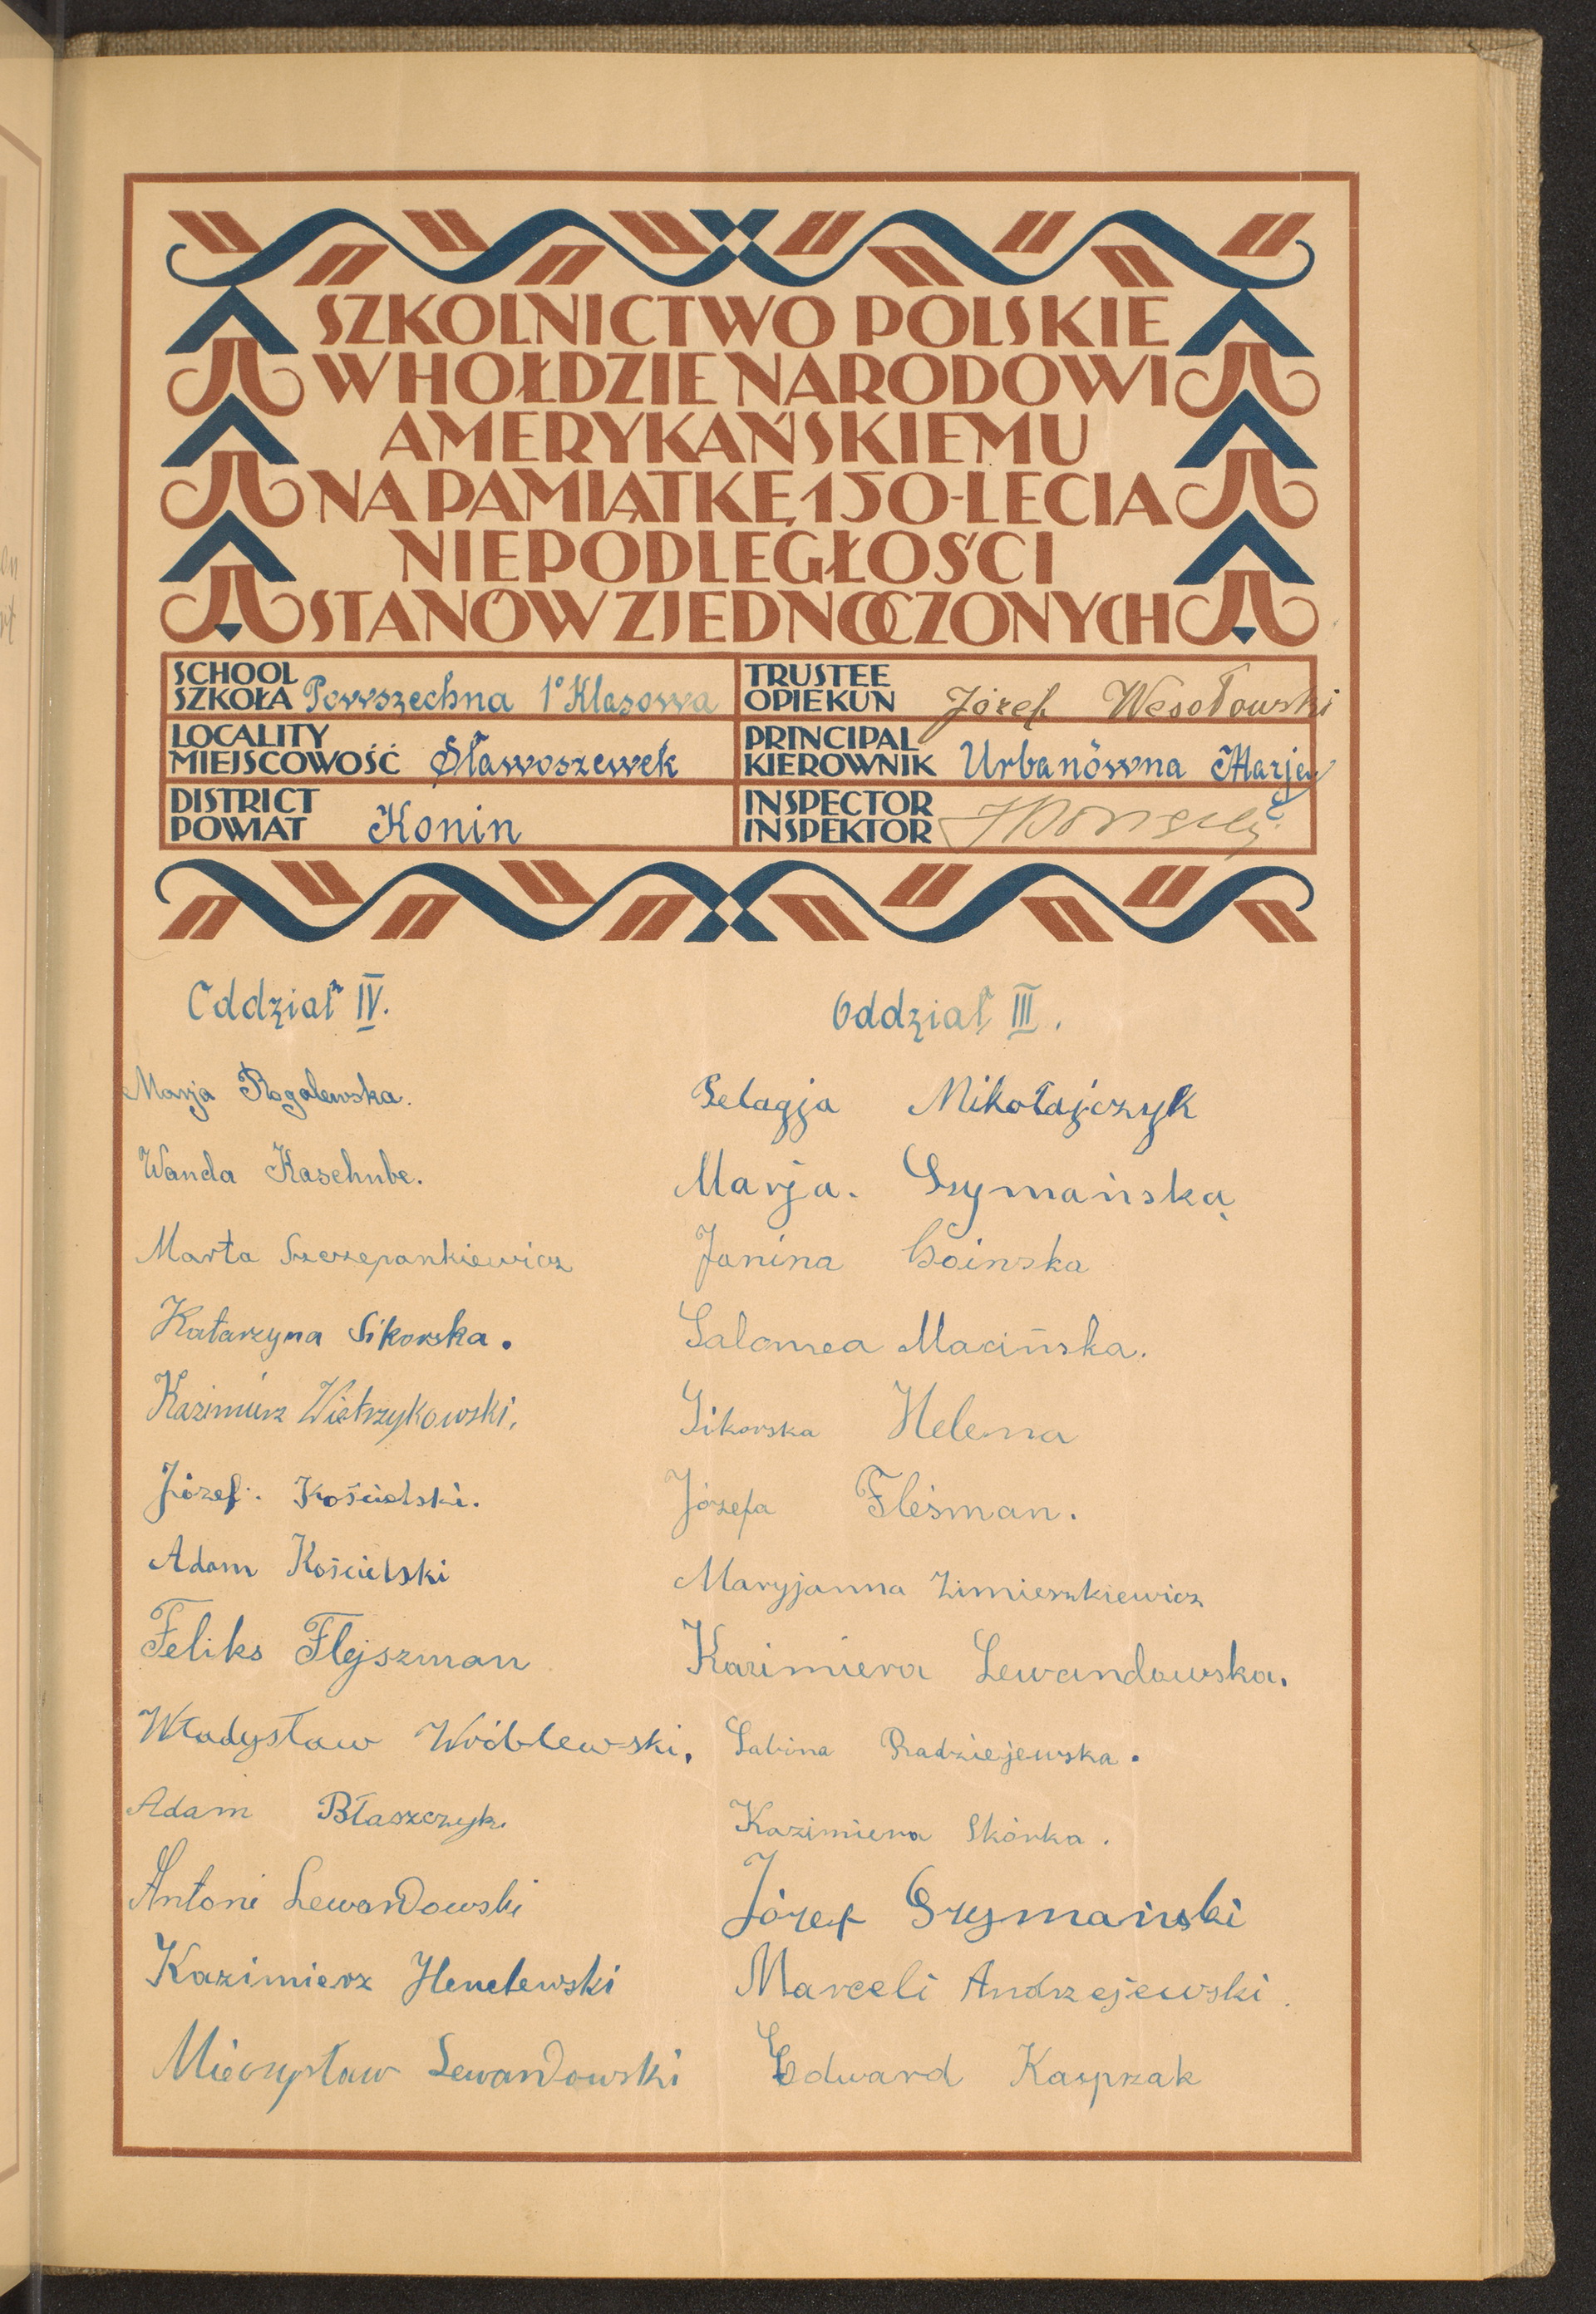 SZKOLNICTWO POLSKIE
W HOŁDZIE NARODOWI
AMERYKAŃSKIEMU
NA PAMIĄTKĘ 150-LECIA
NIEPODLEGŁOŚCI
STANÓW ZJEDNOCZONYCH
SCHOOL
SZKOŁA Powszechna 1° Klasowa
TRUSTEE
OPIEKUN Józef Wesołowski
LOCALITY
MIEJSCOWOŚĆ Sławoszewek
PRINCIPAL
KIEROWNIK Urbanówna Marja
DISTRICT
POWIAT Konin
INSPECTOR
INSPEKTOR
Oddział IV.
Marja Rogalewska.
Wanda Kaschube.
Marta Szczepankiewicz
Katarzyna Sikorska.
Kazimierz Wietrzykowski.
Józef. Kościelski.
Adam Kościelski
Feliks Flejszman
Władysław Wróblewski.
Adam Błaszczyk.
Antoni Lewandowski
Kazimierz Henelewski
Mieczysław Lewandowski
Oddział III.
Pelagja Mikołajczyk
Marja. Szymańska
Janina
Salomea Macińska.
Sikorska Helena
Józefa Fleśman.
Maryjanna Zimierzkiewicz
Kazimiera Lewandowska.
Sabina Radziejewska.
Kazimiera Skórka.
Józef Szymański
Marceli Andrzejewski.
Edward Kasprzak